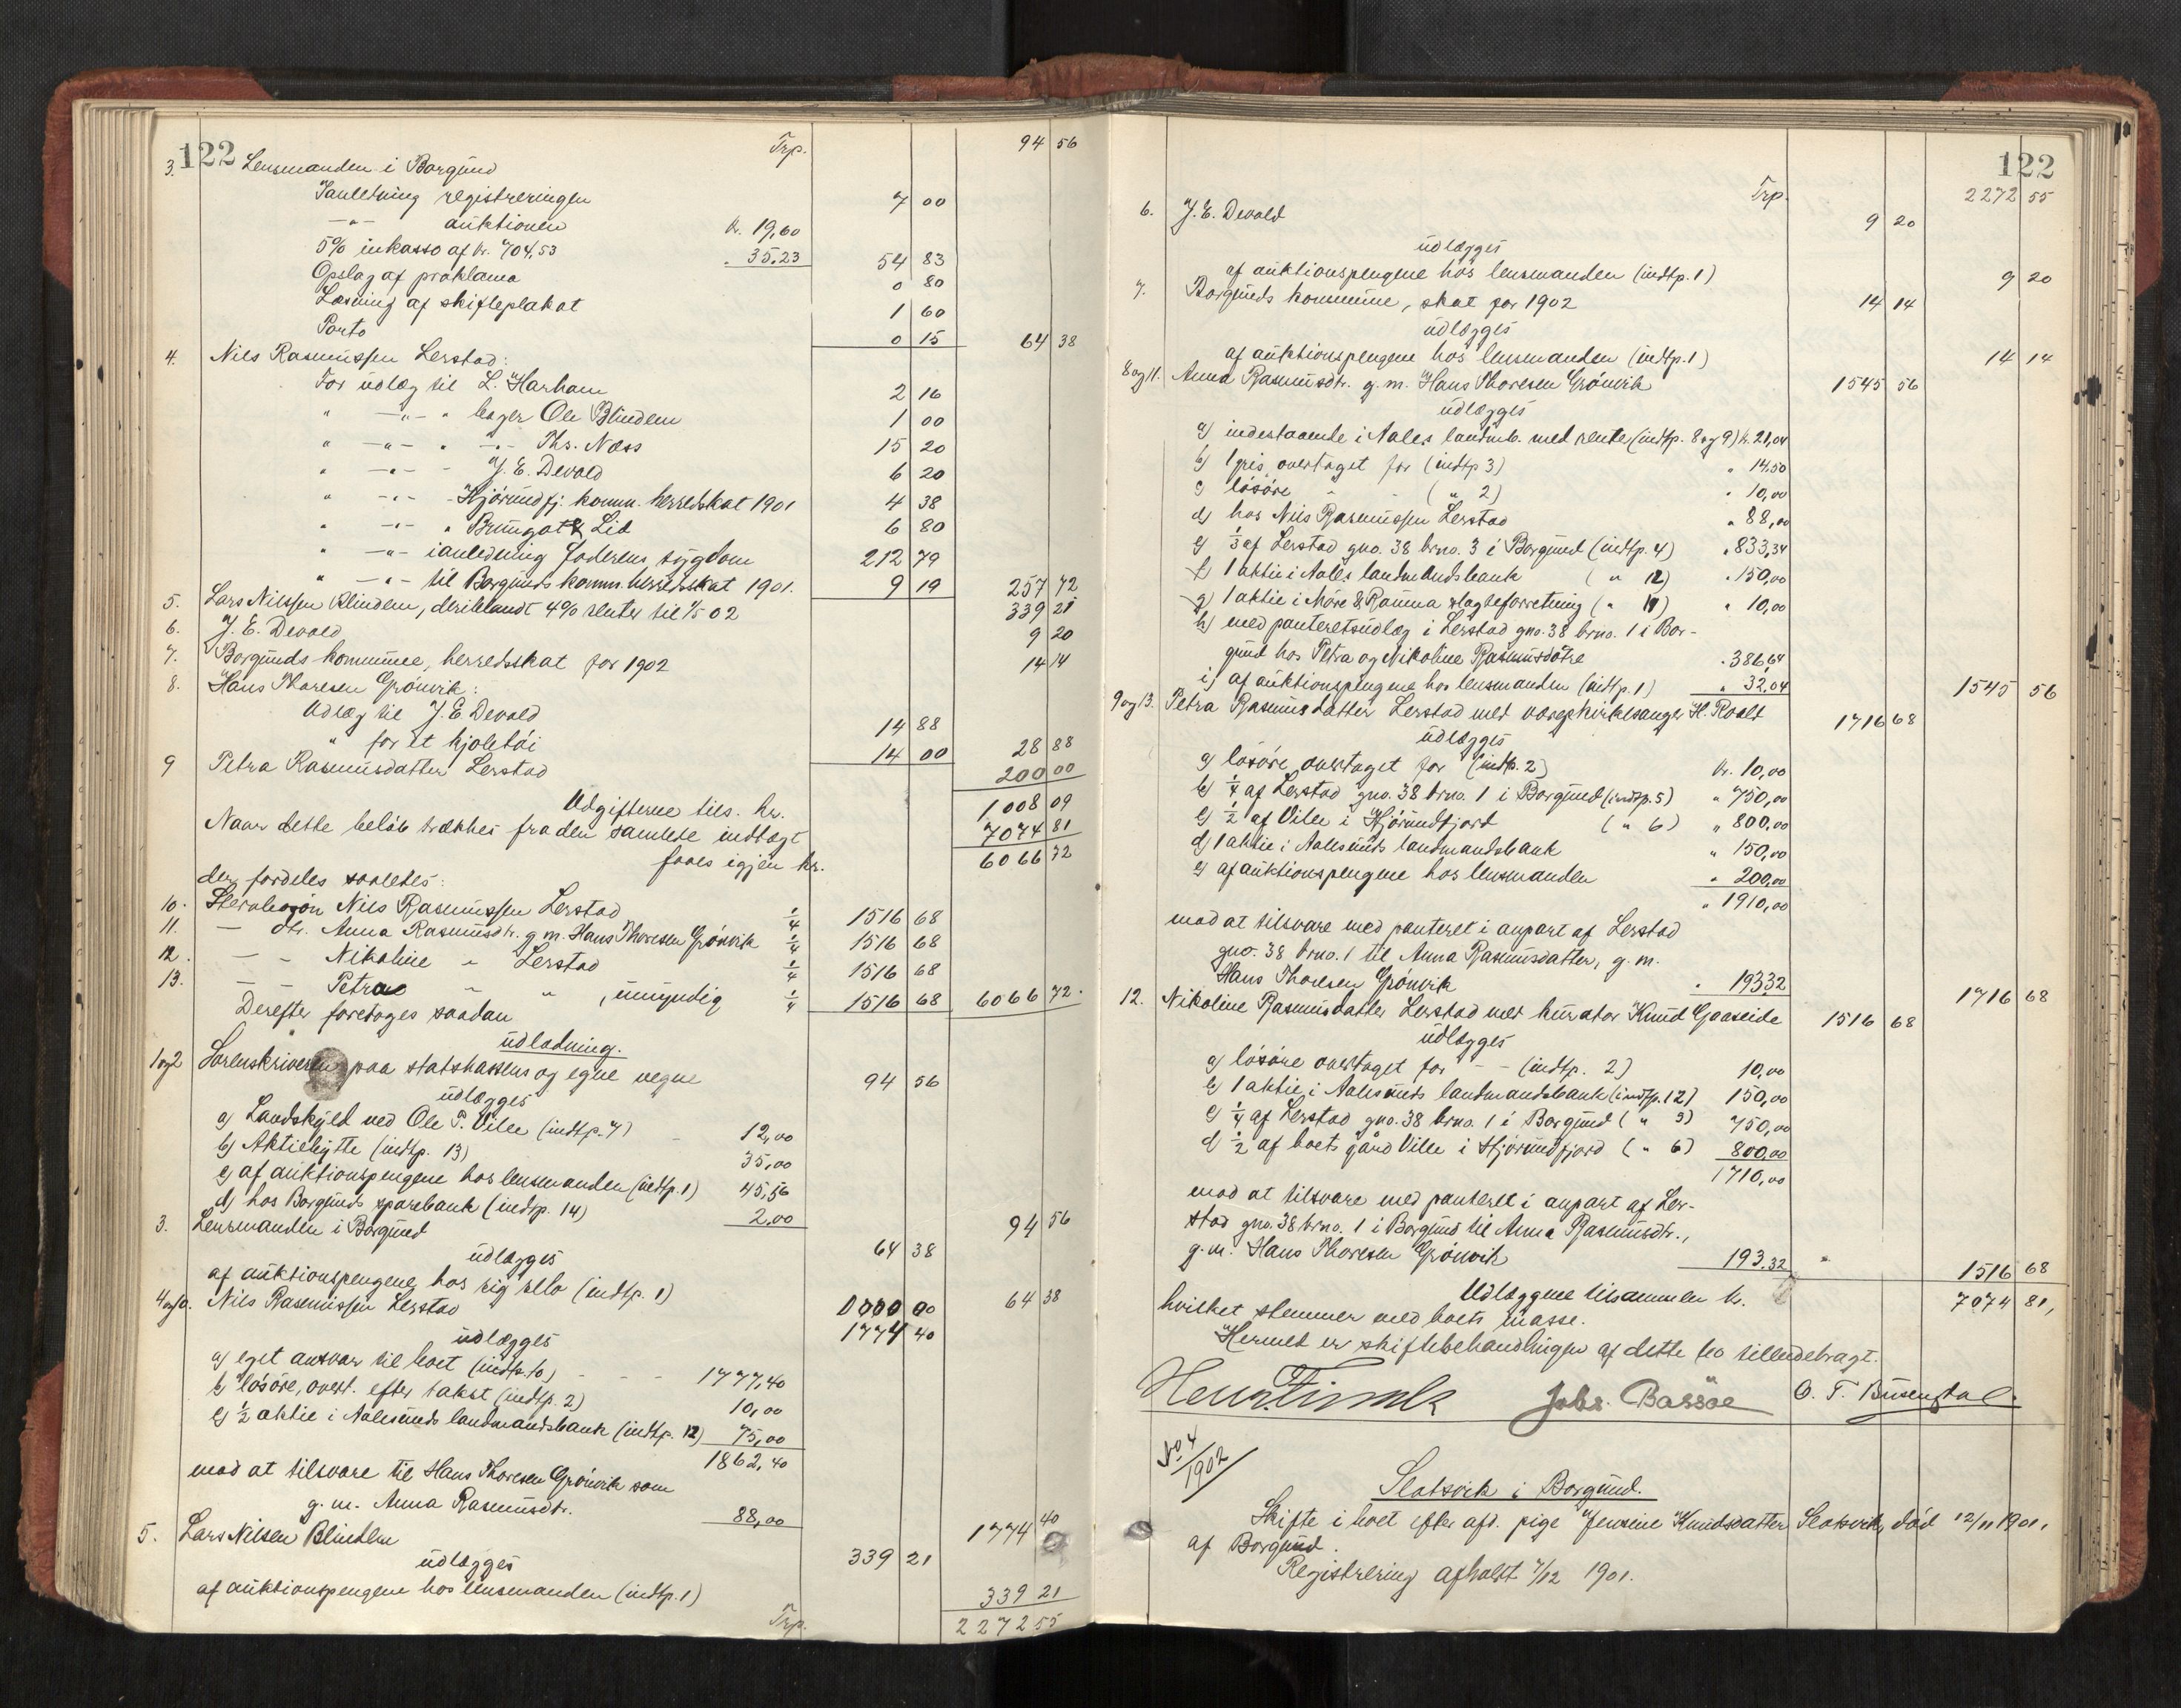 122
Trp. 94 56
3. Lensmanden i Borgund
Ianledning registreringen 7 00
—"— auktionen kr. 19,60
5% inkasso af kr. 704,53 " 35,23 54 83
Opslag af proklama 0 80
Læsning af skifteplakat 1 60
Porto 0 15 64 38
4. Nils Rasmussen Lerstad:
For udlæg til L. Harham 2 16
" —"— " bager Ole Blindem 1 00
" —"— " —"— Ths. Næss 15 20
" —"— " J. E. Devold 6 20
" —"— " Hjörundfj. komm. herredskat 1901 4 38
" —"— " Brungot & Lid 6 80
" —"— ianledning faderens sygdom 212 79
" —"— til Borgunds komm. herredsskat 1901. 9 19 257 72
5. Lars Nilssen Blindem, deriblandt 4% renter til 1/5 02 339 21
6. J. E. Devold 9 20
7. Borgunds kommune, herredsskat for 1902 14 14
8. Hans Thoresen Grönvik:
Udlæg til J. E. Devold 14 88
" for et kjoletöi 14 00 28 88
9 Petra Rasmusdatter Lerstad 200 00
Udgifterne tils. kr. 1008 09
Naar dette belöb trækkes fra den samlede indtægt 7074 81
faaes igjen kr. 6066 72
der fordeles saaledes:
10. Stervbosön Nils Rasmussen Lerstad 1/4 1516 68
11. — dtr. Anna Rasmusdtr. g. m. Hans Thoresen Grönvik 1/4 1516 68
12. — - Nikoline " Lerstad 1/4 1516 68
13. — - Petra " " , umyndig 1/4 1516 68 6066 72.
Derefter foretages saadan
udlodning.
1og2 Sorenskriveren paa statskassens og egne vegne 94 56
udlægges
a) Landskyld ved Ole P. Ville (indtp. 7) - 12,00
b) Aktiehytte (indtp. 13) 35,00
c) af auktionspengene hos lensmanden (indtp. 1) 45,56
d) hos Borgunds sparebank (indtp. 14) 2,00 94 56
3. Lensmanden i Borgund 64 38
udlægges
af auktionspengene hos sig selv (indtp. 1) 64 38
4og10. Nils Rasmussen Lerstad 1774 40
udlægges
a) eget ansvar til boet (indtp. 10) - - - 1777,40
b) lösöre, overt. efter takst (indtp. 2) 10,00
c) 1/2 aktie i Aalesunds landmandsbank (indtp. 12) 75,00
1862,40
mod at tilsvare til Hans Thoresen Grönvik som
g. m. Anna Rasmusdtr. 88,00 1774 40
5. Lars Nilsen Blindem 339 21
udlægges
af auktionspengene hos lensmanden (indtp. 1) 339 21
Trp. 2272 55
122
Trp. 2272 55
6. J. E. Devold 9 20
udlægges
af auktionspengene hos lensmanden (indtp. 1) 9 20
7. Borgunds kommune, skat for 1902 14 14
udlægges
af auktionspengene hos lensmanden (indtp. 1) 14 14
8og11. Anna Rasmusdtr. g. m. Hans Thoresen Grönvik 1545 56
udlægges
a) indestaaende i Aales. landmb. med rente (indtp. 8 og 9) kr. 21,04
b) 1 gris overtaget for (indtp 3) " 14,50
c) lösöre " - ( " 2) " 10,00
d) hos Nils Rasmussen Lerstad " 88,00
e) 1/3 af Lerstad gno. 38 brno. 3 i Borgund (indtp. 4) " 833,34
f) 1 aktie i Aales. landmandsbank ( " 12) " 150,00
g) 1 aktie i Möre & Romma slagteforretning ( " 11) " 10,00
h) med panteretsudlæg i Lerstad gno. 38 brno. 1 i Bor-
gund hos Petra og Nikoline Rasmusdötre " 386,64
i) af auktionspengene hos lensmanden (indtp. 1) " 32,04 1545 56
9og13. Petra Rasmusdatter Lerstad med værge kirkesanger H. Roald 1716 68
udlægges
a) lösöre, overtaget for (indtp. 2) kr. 10,00
b) 1/4 af Lerstad gno. 38 brno. 1 i Borgund (indtp. 5) " 750,00
c) 1/2 af Ville i Hjörundfjord ( " 6) " 800,00
d) 1 aktie i Aalesunds landmandsbank " 150,00
e) af auktionspengene hos lensmanden " 200,00
" 1910,00
mod at tilsvare med panteret i anpart af Lerstad
gno. 38 brno. 1 til Anna Rasmusdatter, g. m.
Hans Thoresen Grönvik " 193,32 1716 68
12. Nikoline Rasmusdatter Lerstad med kurator Knud Gaaseide 1516 68
udlægges
a) lösöre overtaget for - - (indtp. 2) 10,00
b) 1 aktie i Aalesunds landmandsbank (indtp. 12) 150,00
c) 1/4 af Lerstad gno. 38 brno. 1 i Borgund ( " 5) 750,00
d) 1/2 af boets gård Ville i Hjörundfjord ( " 6) 800,00
1710,00
mod at tilsvare med panteret i anpart af Ler-
stad gno. 38 brno. 1 i Borgund til Anna Rasmusdtr.,
g. m. Hans Thoresen Grönvik 193,32 1516 68
Udlæggene tilsammen kr. 7074 81,
hvilket stemmer med boets masse.
Hermed er skiftebehandlingen af dette bo tilendebragt.
Johs. Bassöe
No 4/1902
Slotsvik i Borgund.
Skifte i boet efter afd. pige Jensine Knudsdatter Slotsvik, död 12/11 1901,
af Borgund.
Registrering afholdt 7/12 1901.